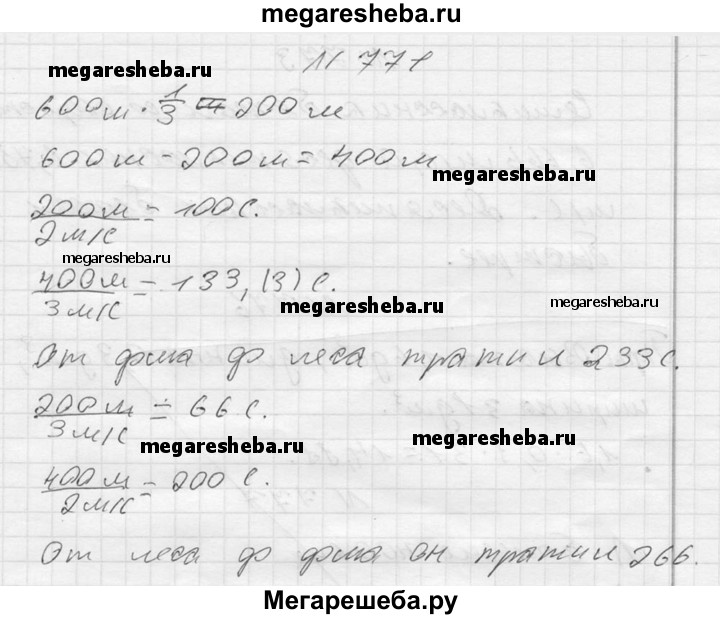 megaresheba.ru
N 771
megaresheba.ru
600м · 1/3 = 200м
600м - 200м = 400м
megaresheba.ru
200м/2м/с = 100с.
megaresheba.ru
400м/3м/с = 133,(3)с.
megaresheba.ru
От дома до леса тратил 233с.
200м/3м/с = 66с.
megaresheba.ru
megaresheba.ru
400м/2м/с = 200с.
От леса до дома он тратил 266.
Мегарешеба.ру